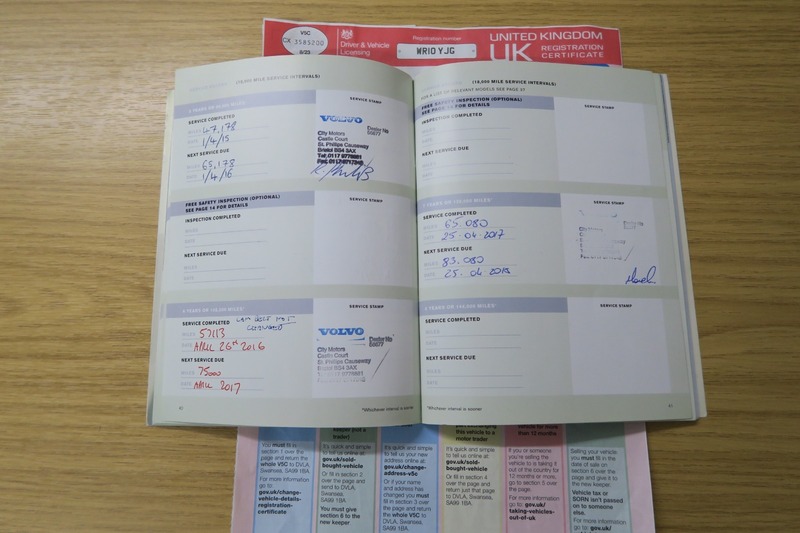 V5C
CX 3585200
6/25
Driver & Vehicle
Licensing
Registration number
WR10 YJG
UNITED KINGDOM
UK REGISTRATION
CERTIFICATE
(18,000 MILE SERVICE INTERVALS)
SERVICE STAMP
SERVICE COMPLETED
MILES 47,178
DATE 1/4/15
NEXT SERVICE DUE
MILES 65,178
DATE 1/4/16
VOLVO
Dealer No
City Motors
Castle Court
St. Philips Causeway
Bristol BS4 3AX
FREE SAFETY INSPECTION (OPTIONAL)
SEE PAGE 14 FOR DETAILS
SERVICE STAMP
INSPECTION COMPLETED
MILES
DATE
NEXT SERVICE DUE
MILES
DATE
SERVICE STAMP
SERVICE COMPLETED
CAM BELT NOT
CHANGED
MILES 57113
DATE APRIL 26th 2016
NEXT SERVICE DUE
MILES 75000
DATE APRIL 2017
VOLVO
Dealer No
City Motors
Castle Court
St. Philips Causeway
Bristol BS4 3AX
*Whichever interval is sooner
(18,000 MILE SERVICE INTERVALS)
FOR A LIST OF RELEVANT MODELS SEE PAGE 27
FREE SAFETY INSPECTION (OPTIONAL)
SERVICE STAMP
INSPECTION COMPLETED
MILES
DATE
NEXT SERVICE DUE
MILES
DATE
SERVICE STAMP
SERVICE COMPLETED
MILES 65080
DATE 25.04.2017
NEXT SERVICE DUE
MILES 83.080
DATE 25.04 2018
SERVICE STAMP
SERVICE COMPLETED
MILES
DATE
NEXT SERVICE DUE
MILES
DATE
*Whichever interval is sooner
You must fill in
section 2 over the
page and return the
whole V5C to DVLA,
Swansea, SA99 1BA.
For more information
go to:
gov.uk/change-
vehicle-details-
registration-
certificate
trader)
It's quick and simple
to tell us online at
gov.uk/sold-
bought-vehicle
Or fill in section
2 over the page and
send to DVLA,
Swansea,
SA99 1BA.
You must give
section 6 to the
new keeper
It's quick and simple
to tell us your new
address online at:
gov.uk/change-
address-v5c
Or if your name and
address has changed
you must fill in section
3 over the page and
return the whole V5C
to DVLA, Swansea,
SA99 1BA.
this vehicle to a
motor trader
It's quick and simple
to tell us online at:
gov.uk/sold-
bought-vehicle
Or fill in section 4
over the page and
return just that page
to DVLA, Swansea,
SA99 1BA.
for more than
12 months.
If you or someone
you're selling the
vehicle to is taking it
out of the country for
12 months or more,
go to section 5 over
the page.
For more information
go to: gov.uk/
taking-vehicles-
out-of-uk
Selling your vehicle
you must fill in the
date of sale on
section 6 over the
page and give it to
the new keeper.
Vehicle tax or
SORN isn't passed
on to someone
else.
For more information
go to: gov.uk/